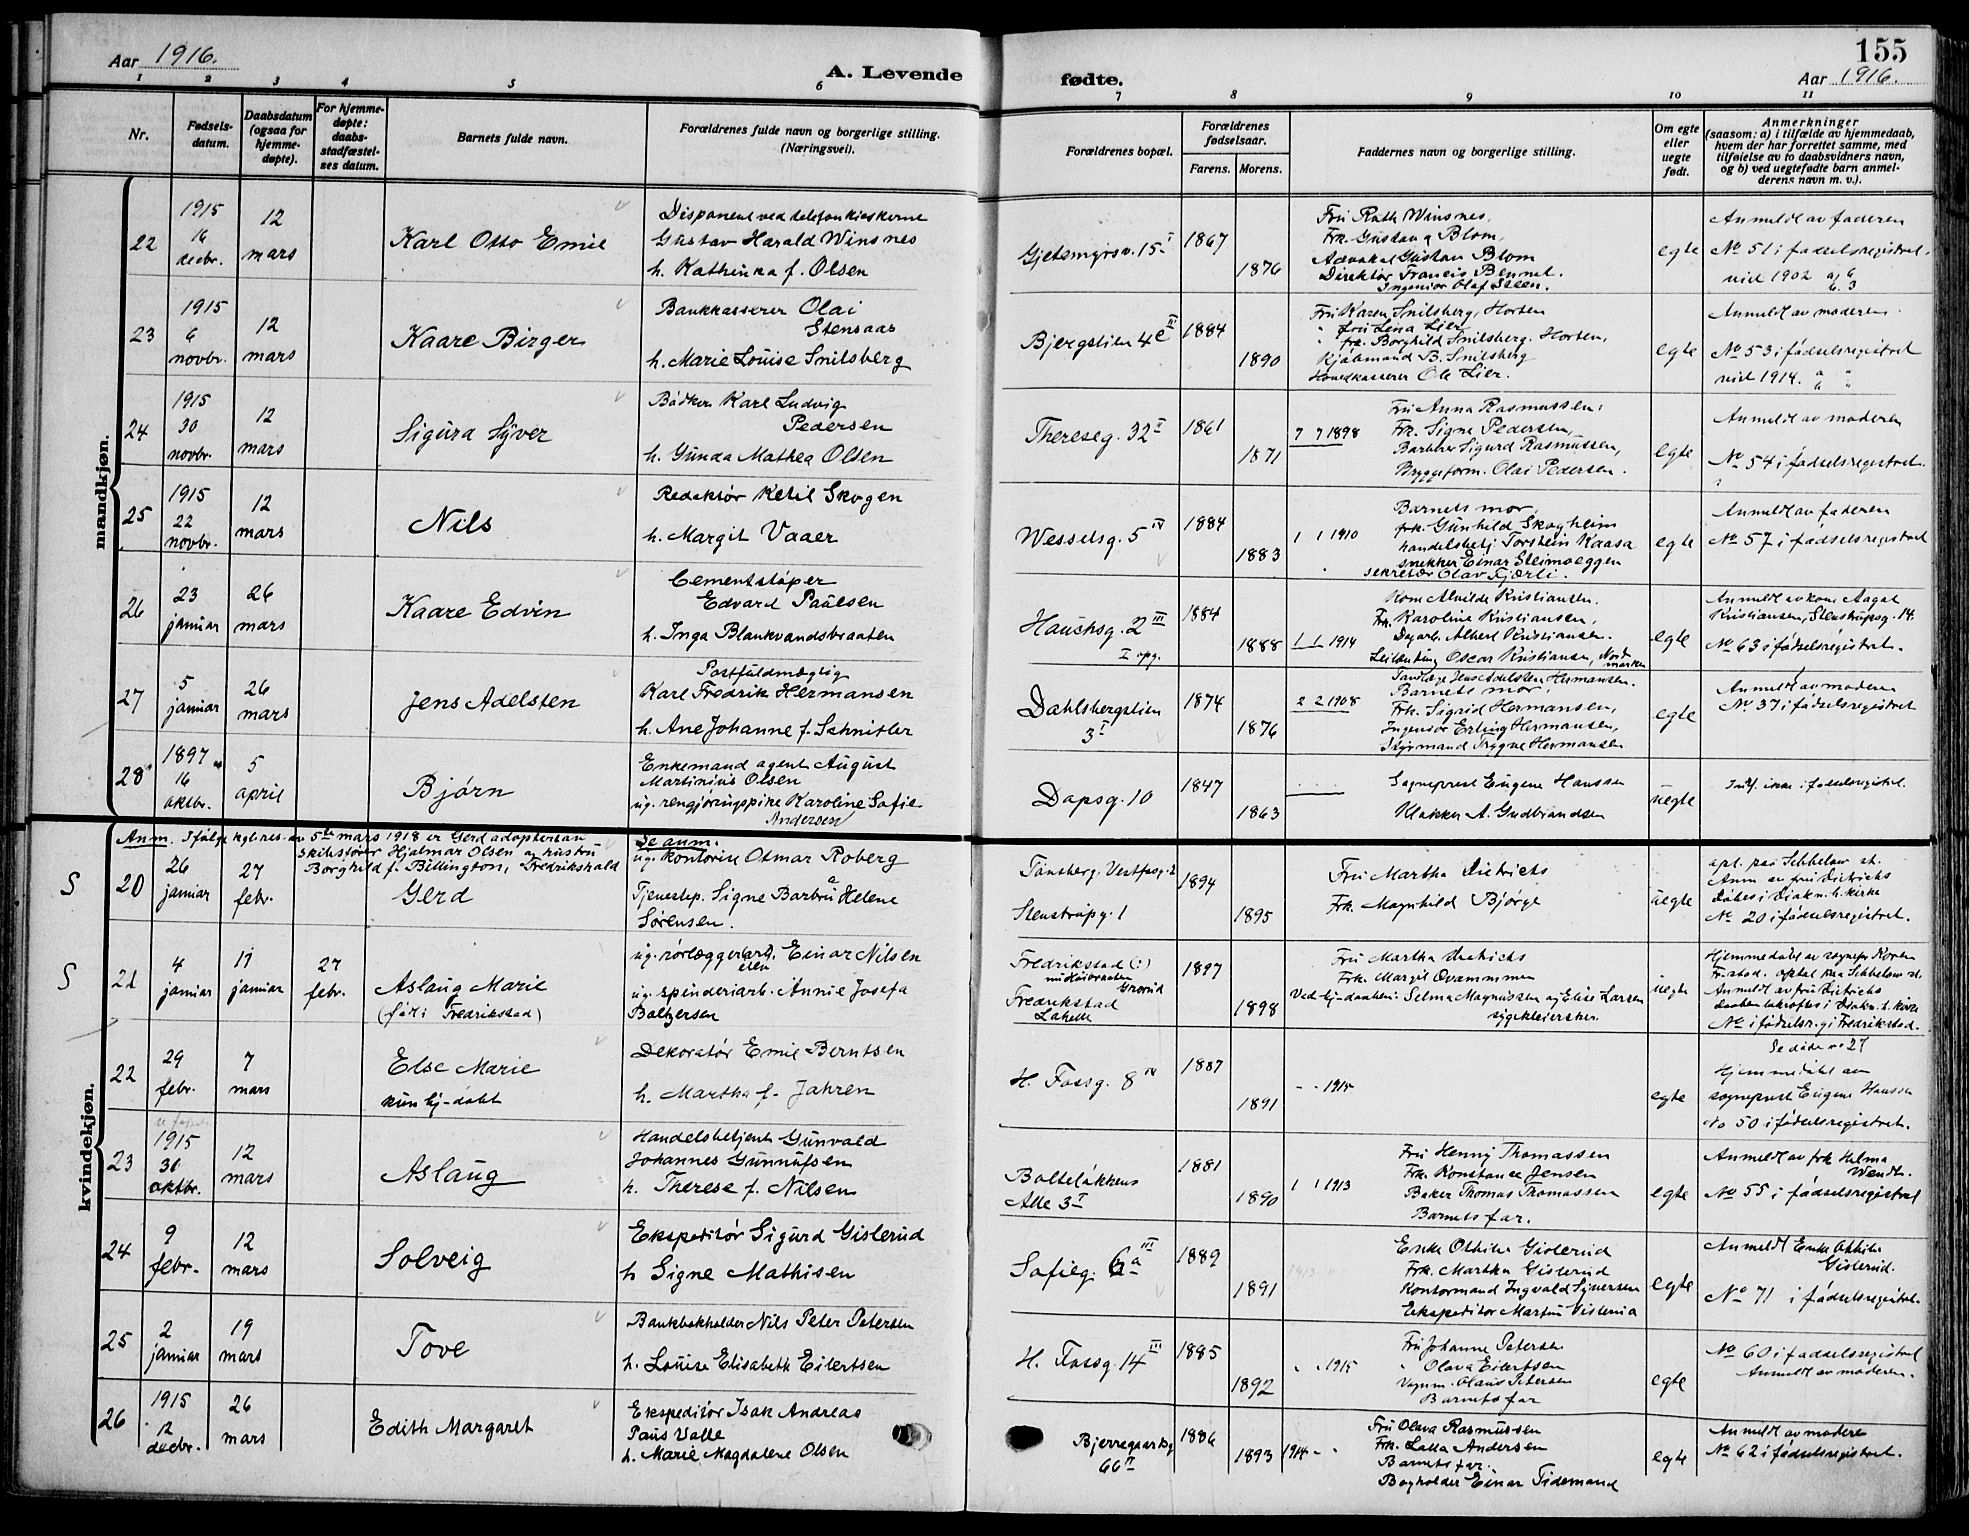 Aar 1916.
A. Levende fødte.
155
Aar 1916.
1 2 3 4 5 6 7 8 9 10 11
Nr.
Fødsels-
datum.
Daabsdatum
(ogsaa for
hjemme-
døpte).
For hjemme-
døpte:
daabs-
stadfæstel-
ses datum.
Barnets fulde navn.
Forældrenes fulde navn og borgerlige stilling.
(Næringsvei).
Forældrenes bopæl.
Forældrenes
fødselsaar.
Farens. Morens.
Faddernes navn og borgerlige stilling.
Om egte
eller
uegte
født.
Anmerkninger
(saasom: a) i tilfælde av hjemmedaab,
hvem der har forrettet samme, med
tilføielse av to daabsvidners navn,
og b) ved uegtefødte barn anmel-
derens navn m. v.).
mandkjøn.
22
1915
16
decbr.
12
mars
Karl Otto Emil
Disponent ved telefonkioskerne
Gustav Harald Winsnes
h. Kathinka f. Olsen
Gjetemyrsv. 15 I
1867
1876
Fru Ruth Winsnes,
Frk. Gustava Blom,
Advokat Gustav Blom
Direktør Francis Bennet.
Ingeniør Olaf Steen.
egte
Anmeldt av faderen
No 51 i fødselsregistret.
vid 1902
23
1915
6
novbr.
12
mars
Kaare Birger
Bankkasserer Olai
Stensaas
h. Marie Louise Snilsberg
Bjergslien 4e II
1884
1890
Fru Karen Snilsberg, Horten
" fru Lina Lier
" frk. Borghild Snilsberg, Horten,
Kjøbmand B. Snilsberg
Hovedkasserer Ole Lier.
egte
Anmeldt av moderen.
No 53 i fødselsregistret
vid 1914.
24
1915
30
novbr.
12
mars
Sigurd Syver
Bødker Karl Ludvig
Pedersen
h. Gunda Mathea Olsen
Thereseg. 32 I
1861
1871
7 7 1898
Fru Anna Rasmussen,
Frk. Signe Pedersen,
Barberer Sigurd Rasmussen,
Bryggeform. Olai Pedersen.
egte
Anmeldt av moderen
No 54 i fødselsregistret.
25
1915
22
novbr.
12
mars
Nils
Redaktør Ketil Skogen
h. Margit Vaaer
Wesselsg. 5 IV
1884
1883
1 1 1910
Barnets mor,
frk. Gunhild Skogheim
handelsbetj Torstein Kaasa
snekker Einar Steimoeggen
sekretær Olav Fjærli.
egte
Anmeldt av faderen
No 57 i fødselsregistret
26
23
januar
26
mars
Kaare Edvin
Cementstøper
Edvard Paulsen
h. Inga Blankvandsbraaten
Hauchsg. 2 III
I opg.
1884
1888
1 1 1914
Kone Alvilde Kristiansen.
Frk. Karoline Kristiansen,
Dagarb. Albert Kristiansen.
Leilending Oscar Kristiansen, Nord
marken
egte
Anmeldt av kone Aagot
Kristiansen, Stenstrupsg. 14.
No 63 i fødselsregistret.
27
5
januar
26
mars
Jens Adelsten
Postfuldmægtig
Karl Fredrik Hermansen
h. Ane Johanne f. Schnitler
Dahlsbergstien
3 I
1874
1876
2 2 1908
Tandlæge Jens Adelsten Hermansen.
Barnets mor,
Frk. Sigrid Hermansen,
Ingeniør Erling Hermansen,
Styrmand Trygve Hermansen
egte
Anmeldt av moderen
No 37 i fødselsregistret
28
1897
16
oktbr.
5
april
Bjørn
Enkemand agent August
Martinius Olsen
ug. rengjøringspike Karoline Sofie
Andersen
Dopsg. 10
1847
1863
Sogneprest Eugene Hanssen
Klokker A. Gudbrandsen
uegte
Indf. ikke i fødselsregistret.
kvindekjøn.
Anm. Ifølge kgl. res. av 5te mars 1918 er Gerd adoptert av
skibsfører Hjalmar Olsen og hustru
Borghild f. Billington, Fredrikshald
S
20
26
januar
27
febr.
Gerd
Se anm.
ug. kontorist Otmar Roberg
Tjenestep. Signe Barbra Helene
Sørensen.
Tønsberg. Vestfosg. 2
Stenstrupg. 1
1894
1895
Fru Martha Dietrichs
Frk. Magnhild Bjørge
uegte
opt. paa Sebbelow st.
Anm av fru Dietrichs
Døbt i Diakn. h. kirke
No. 20 i fødselsregistret.
S
21
4
januar
11
januar
27
febr.
Aslaug Marie
(født i Fredrikstad)
ug. rørlæggerarb. Einar Nilsen
ug. spinderiarb. Annie Josefa
Baltzersen
Fredrikstad (:)
Grorud
Fredrikstad
1897
1898
Fru Martha Dietrichs
Frk. Margit Qvammmen
Ved hj-daaben: Selma Magnussen og Elise Larsen
sygepleiersker.
uegte
Hjemmedøbt av sognepr Koren
Fr.stad. optat paa Sebbelow st.
Anmeldt av fru Dietrichs
Daaben bekræftet i Diakn. h. kirke
No i fødselsreg i Fredrikstad.
22
29
febr.
7
mars
Else Marie
kun hj-døbt
Dekoratør Emil Berntsen
h. Martha f. Jahren
H. Fossg. 8 IV
1887
1891
" " 1915
egte
Se døde no 27
Hjemmedøbt av
sogneprest Eugene Hanssen
No 50 i fødselsregistret.
23
1915
30
oktbr.
12
mars
Aslaug
Handelsbetjent Gunvald
Johannes Gunnufsen
h. Therese f. Nilsen
Bolteløkkens
Alle 3 I
1881
1890
1 1 1913
Fru Henny Thomassen
Frk. Konstance Jensen
Baker Thomas Thomassen
Barnets far.
egte
Anmeldt av frk Helma
Wendt.
No 55 i fødselsregistret
24
9
febr.
12
mars
Solveig
Ekspeditør Sigurd Gislerud
h Signe Mathisen
Sofieg. 6a III
1889
1891
Enke Othilie Gislerud
Frk. Martha Gislerud
Kontormand Ingvald Syversen
Ekspeditør Martin Visteria
egte
Anmeldt Enke Othilie
Gislerud.
No 71 i fødselsregistret.
25
2
januar
19
mars
Tove
Bankbokholder Nils Peter Petersen
h. Louise Elisabeth Eilertsen
H. Fossg. 14 III
1885
1892
" " 1915
Fru Johanne Petersen
" Olava Eilertsen
Vognm. Olaus Petersen
Barnets far
egte
No 60 i fødselsregistret
Anmeldt av moderen.
26
1915
12
decbr.
26
mars
Edith Margaret
Ekspeditør Isak Andreas
Paus Valle
h. Marie Magdalene Olsen
Bjerregaardsg
66 II
1886
1893
1914 " "
Fru Olava Rasmussen
Frk. Lalla Andersen
Barnets far.
Bogholder Einar Tidemand
egte
Anmeldt av moderen
No 62 i fødselsregistret.